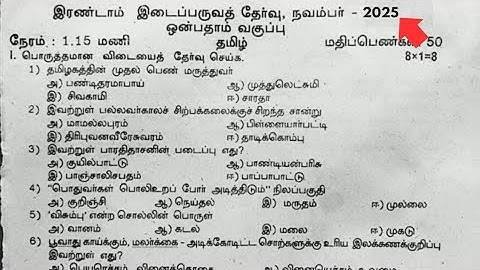 இரண்டாம் இடைப்பருவத் தேர்வு, நவம்பர் - 2025
ஒன்பதாம் வகுப்பு
நேரம் : 1.15 மணி தமிழ் மதிப்பெண்கள் 50
I. பொருத்தமான விடையைத் தேர்வு செய்க. 8×1=8
1) தமிழகத்தின் முதல் பெண் மருத்துவர்
அ) பண்டிதரமாபாய் ஆ) முத்துலெட்சுமி
இ) சிவகாமி ஈ) சாரதா
2) இவற்றுள் பல்லவர்காலச் சிற்பக்கலைக்குச் சிறந்த சான்று
அ) மாமல்லபுரம் ஆ) பிள்ளையார்பட்டி
இ) திரிபுவனவீரேசுவரம் ஈ) தாடிக்கொம்பு
3) இவற்றுள் பாரதிதாசனின் படைப்பு எது?
அ) குயில்பாட்டு ஆ) பாண்டியன்பரிசு
இ) பாஞ்சாலிசபதம் ஈ) பாப்பாபாட்டு
4) "பொதுவர்கள் பொலிஉறப் போர் அடித்திடும்" நிலப்பகுதி
அ) குறிஞ்சி ஆ) நெய்தல் இ) மருதம் ஈ) முல்லை
5) 'விசும்பு' என்ற சொல்லின் பொருள்
அ) வானம் ஆ) கடல் இ) மலை ஈ) முகடு
6) பூவாது காய்க்கும், மலர்க்கை - அடிக்கோடிட்ட சொற்களுக்கு உரிய இலக்கணக்குறிப்பு
இவற்றுள் எது?
அ) பெயரெச்சம், வினைத்தொகை ஆ)